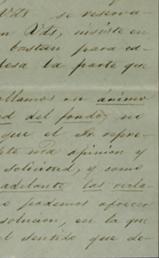 Vds se reserva-
n Vds, insiste en
bastien para ca-
lesa la parte que
ollamos en ánimo
ad del fondo, no
que el Sr. repre-
sta opinion y
solicitud, y como
adelante, las recla-
podemos ofrecer
solucion, en la que
el sentido que de-